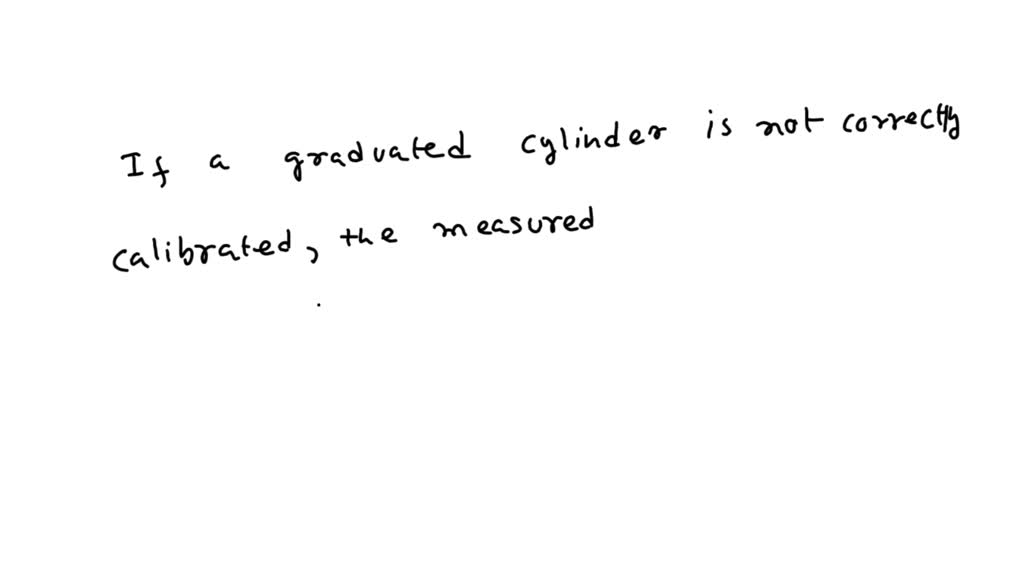 If a graduated cylinder is not correctly
calibrated, the measured